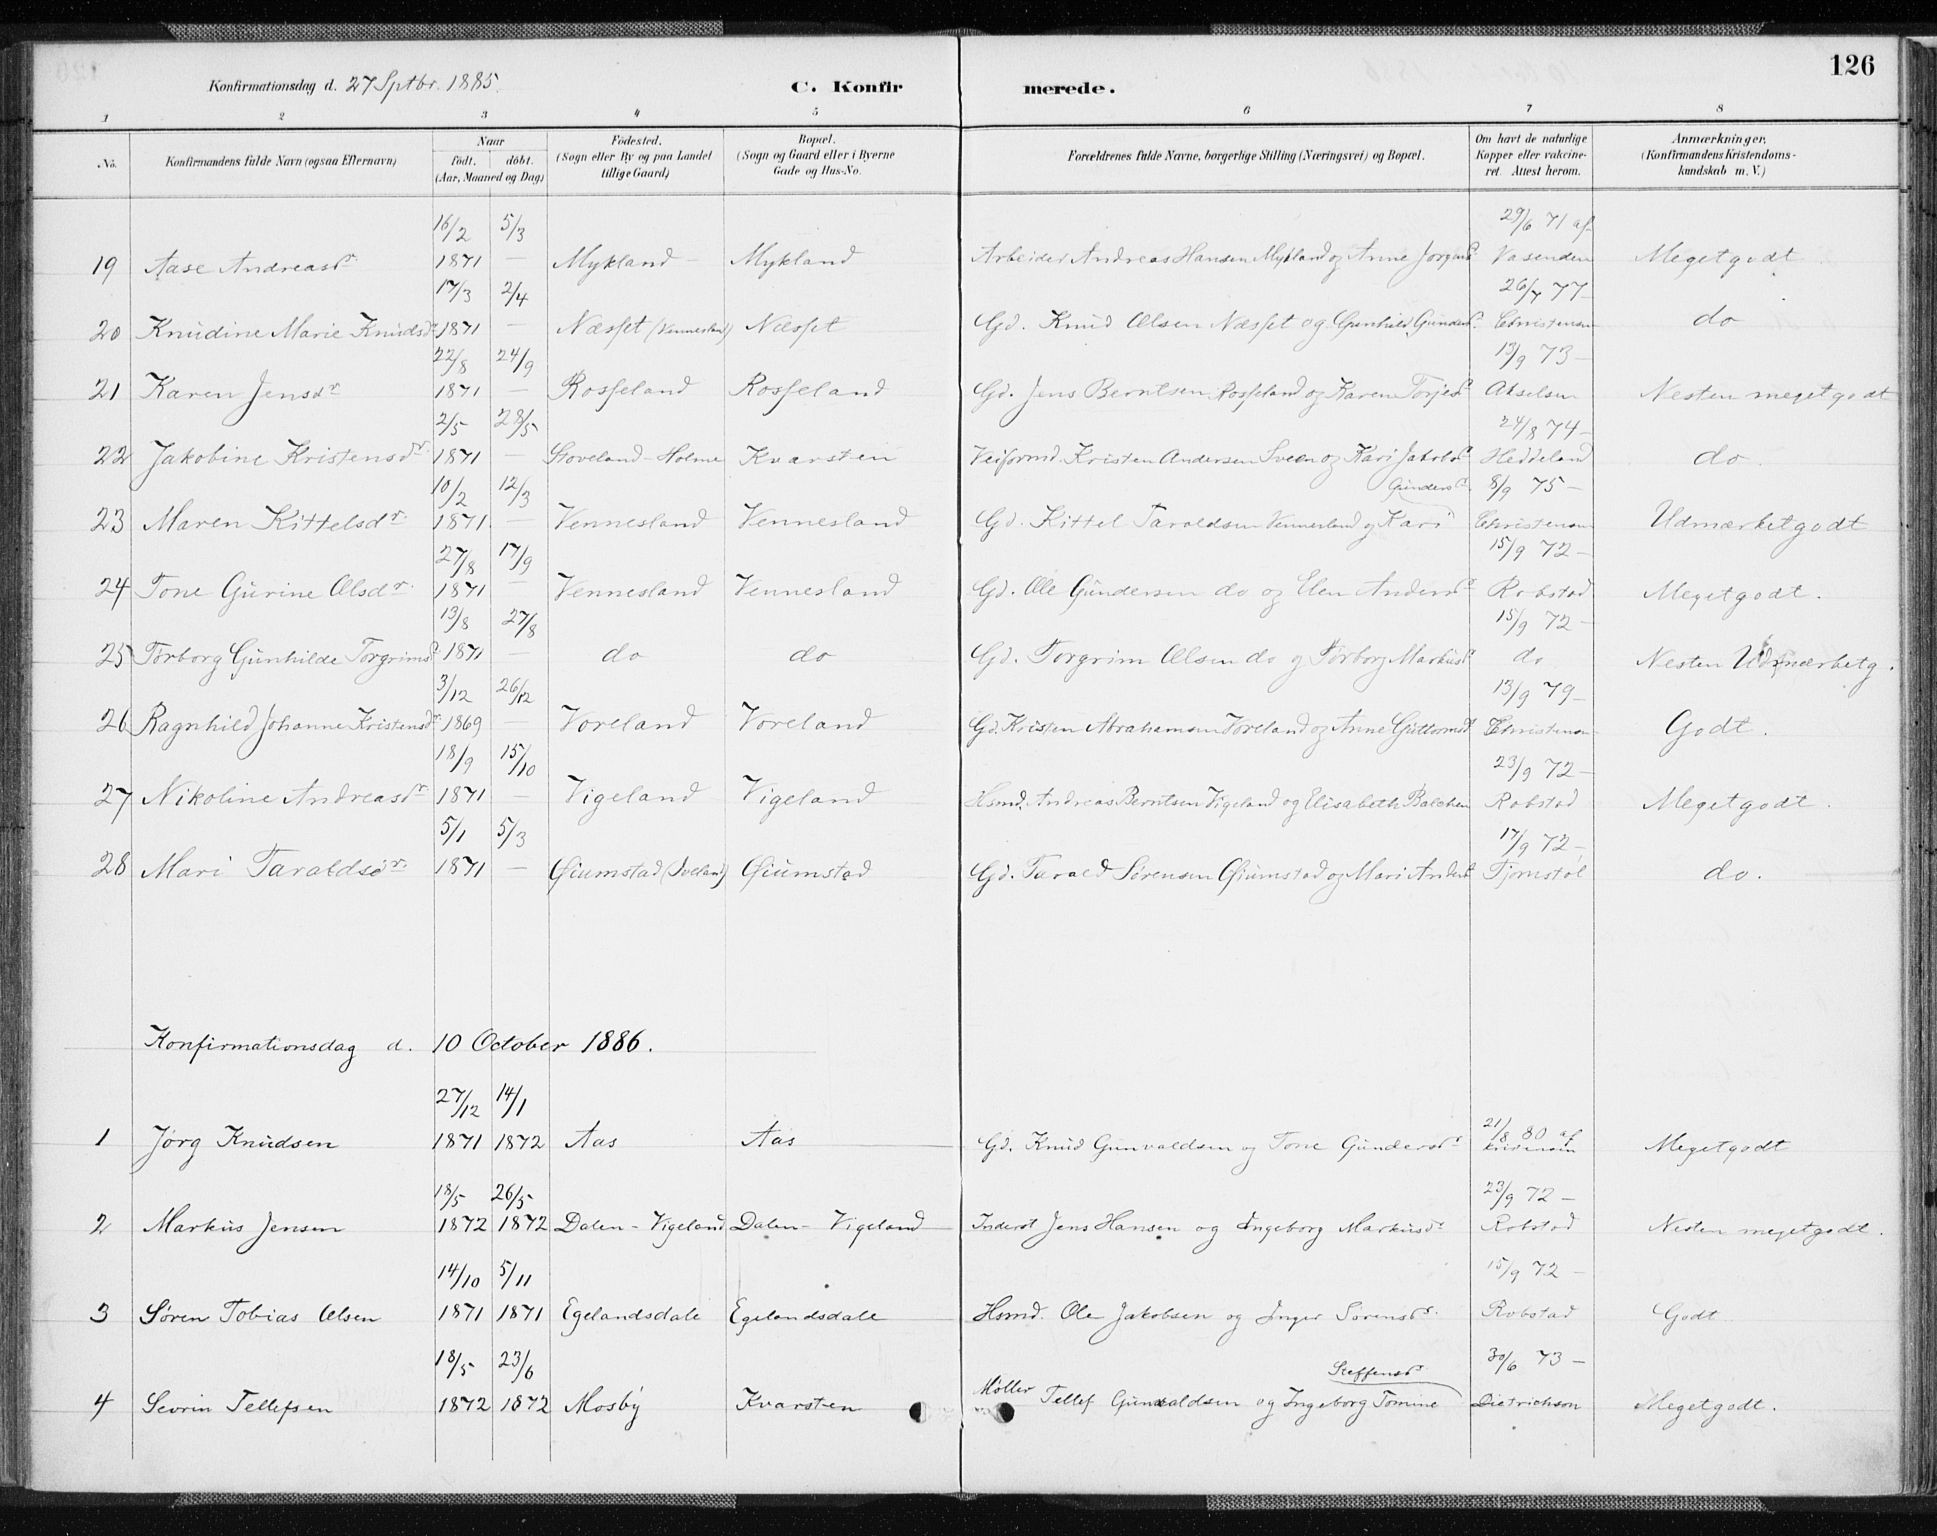 126
Konfirmationsdag d. 27 Sptbr. 1885.
C. Konfirmerede.
1 2 3 4 5 6 7 8
No.
Konfirmandens fulde Navn (ogsaa Efternavn)
Naar
født. døbt.
(Aar, Maaned og Dag)
Fødested.
(Sogn eller By og paa Landet
tillige Gaard)
Bopæl.
(Sogn og Gaard eller i Byerne
Gade og Hus-No.
Forældrenes fulde Navne, borgerlige Stilling (Næringsvei) og Bopæl.
Om havt de naturlige
Kopper eller vakcine-
ret. Attest herom.
Anmærkninger.
(Konfirmandens Kristendoms-
kundskab m. V.)
16/2 5/3 29/6 71 af
19 Aase Andreasdr. 1871 — Mykland Mykland Arbeider Andreas Hansen Mykland og Anne Jørgensd. Vasenden Megetgodt
17/3 2/4 26/7 77 —
20 Knudine Marie Knudsdr 1871 — Næsset (Vennesland) Næsset Gd. Knud Olsen Næsset og Gunhild Gundersd. Christensen do
22/8 24/9 13/9 73 —
21 Karen Jensdr 1871 — Rosseland Rosseland Gd. Jens Berntsen Rosseland og Karen Torjesd. Akselsen Nesten megetgodt
2/5 28/5 24/8 74 —
22 Jakobine Kristensdr. 1871 — Stoveland-Holme Kvarsten Veiformd. Kristen Andersen Sveen og Kari Jakobsd. Heddeland do.
10/2 12/3 Gundersd. 8/9 75 —
23 Maren Kittelsdr. 1871. — Vennesland Vennesland Gd. Kittel Taraldsen Vennesland og Kari Christensen Udmærketgodt
27/8 17/9 15/9 72 —
24 Tone Gurine Olsdr. 1871 — Vennesland Vennesland Gd. Ole Gundersen do og Elen Andersd. Robstad Megetgodt.
13/8 27/8 15/9 72 —
25 Torborg Gunhilde Torgrimsd. 1871 — do do Gd. Torgrim Olsen do og Torborg Markusd. do Nesten Udmærketg.
3/12 26/12 13/9 79 —
26 Ragnhild Johanne Kristensdr 1869 — Voreland Voreland Gd. Kristen Abrahamsen Voreland og Anne Guttormsd. Christensen Godt.
18/9 15/10 23/9 72 —
27 Nikoline Andreasdr 1871 — Vigeland Vigeland Hsmd. Andreas Berntsen Vigeland og Elisabeth Balchen Robstad Megetgodt.
5/1 5/3 17/9 72 —
28 Mari Taraldsdr. 1871 — Øiumstad (Iveland) Øiumstad Gd. Tarald Sørensen Øiumstad og Mari Andersd. Tjomstøl do.
Konfirmationsdag d. 10 October 1886.
27/12 14/1 21/8 80 af
1 Jørg Knudsen 1871 1872 Aas Aas Gd. Knud Gunvaldsen og Tone Gundersdr Kristensen Megetgodt
18/5 26/5 23/9 72 —
2 Markus Jensen 1872 1872 Dalen - Vigeland Dalen - Vigeland Inderst Jens Hansen og Ingeborg Markusdr Robstad Nesten megetgodt.
14/10 5/11 15/9 72 —
3 Søren Tobias Olsen 1871 1871 Egelandsdale Egelandsdale Hsmd. Ole Jakobsen og Inger Sørensdr. Robstad Godt
18/5 23/6 Steffensdr. 30/6 73 —
4 Sevrin Tellefsen 1872 1872 Mosby Kvarsten Møller Tellef Gunvaldsen og Ingeborg Tomine Dietrichson Megetgodt.